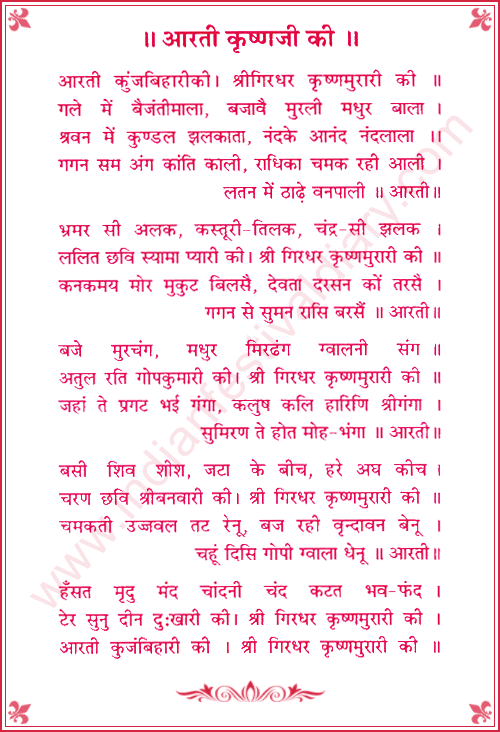 ॥ आरती कृष्णजी की ॥
आरती कुंजबिहारीकी। श्रीगिरधर कृष्णमुरारी की ॥
गले में बैजंतीमाला, बजावै मुरली मधुर बाला ।
श्रवन में कुण्डल झलकाता, नंदके आनंद नंदलाला ।।
गगन सम अंग कांति काली, राधिका चमक रही आली ।
लतन में ठाढ़े वनपाली ॥ आरती॥
भ्रमर सी अलक, कस्तूरी-तिलक, चंद्र-सी झलक ।
ललित छवि स्यामा प्यारी की। श्री गिरधर कृष्णमुरारी की ॥
कनकमय मोर मुकुट बिलसै, देवता दरसन कों तरसै ।
गगन से सुमन रासि बरसैं ॥ आरती॥
बजे मुरचंग, मधुर मिरढंग ग्वालनी संग ॥
अतुल रति गोपकुमारी की। श्री गिरधर कृष्णमुरारी की ॥
जहां ते प्रगट भई गंगा, कलुष कलि हारिणि श्रीगंगा ।
सुमिरण ते होत मोह-भंगा ॥ आरती॥
बसी शिव शीश, जटा के बीच, हरे अघ कीच ।
चरण छवि श्रीबनवारी की। श्री गिरधर कृष्णमुरारी की ॥
चमकती उज्जवल तट रेनू, बज रही वृन्दावन बेनू ।
चहूं दिसि गोपी ग्वाला धेनू ॥ आरती॥
हँसत मृदु मंद चांदनी चंद कटत भव-फंद ।
टेर सुनु दीन दु:खारी की। श्री गिरधर कृष्णमुरारी की ।
आरती कुजंबिहारी की । श्री गिरधर कृष्णमुरारी की ॥
www.indianfestivaldiary.com